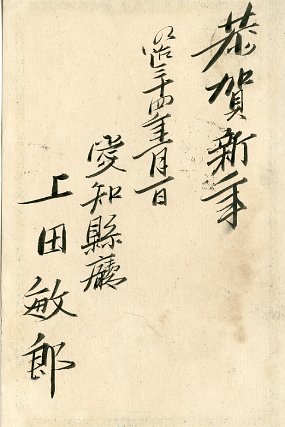 恭賀新年
明治三十四年一月一日
愛知縣廳
上田敏郎